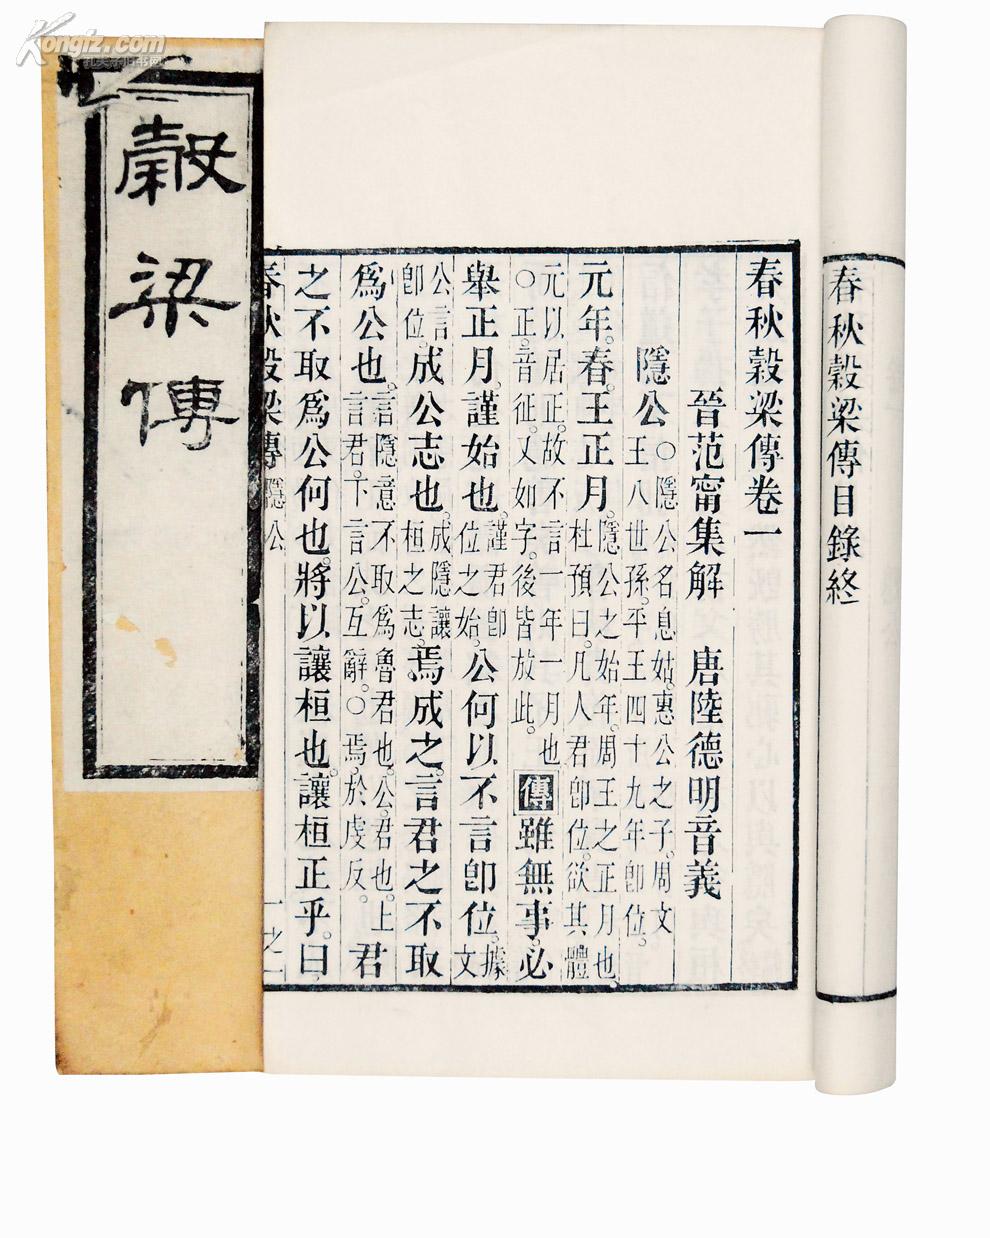 Kongfz.com
孔夫子旧书网
穀梁傳
春秋穀梁傳目錄終
春秋穀梁傳卷一
晉范甯集解 唐陸德明音義
隱公 ○隱公名息姑。惠公之子。周文
王八世孫。平王四十九年卽位。
元年。春。王正月。隱公之始年。周王之正月也。
杜預曰。凡人君卽位。欲其體
元以居正。故不言一年一月也
○正。音征。又如字。後皆放此。傳雖無事。必
舉正月。謹始也。謹君卽
位之始。公何以不言卽位。據文
公言
卽位。成公志也。成隱讓
桓之志。焉成之。言君之不取
爲公也。言隱意不取爲魯君也。公。君也。上
言君。下言公。互辭。○焉。於虔反。君
之不取爲公何也。將以讓桓也。讓桓正乎。曰。
春秋穀梁傳 隱公 一之一